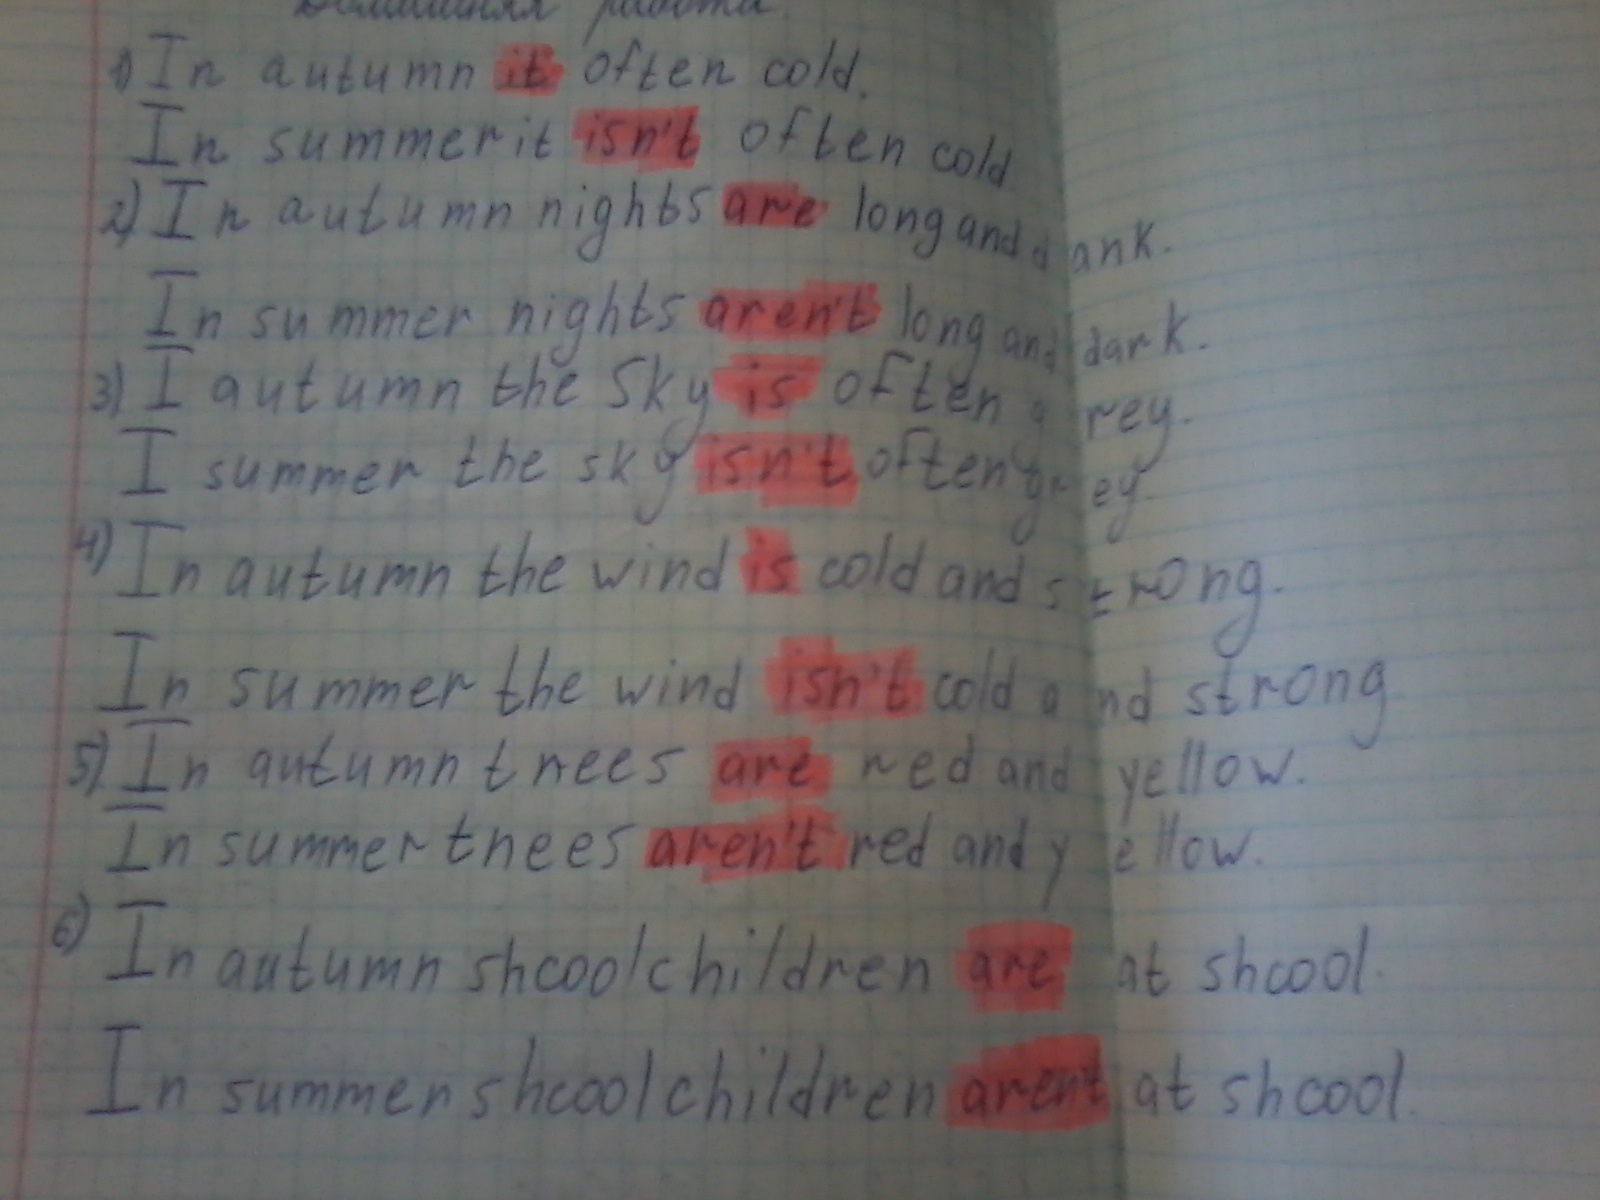 Домашняя работа.
1) In autumn it often cold.
In summer it isn't often cold
2) In autumn nights are long and dank.
In summer nights aren't long and dark.
3) I autumn the sky is often grey.
I summer the sky isn't often grey.
4) In autumn the wind is cold and strong.
In summer the wind isn't cold and strong
5) In autumn trees are red and yellow.
In summer trees aren't red and yellow.
6) In autumn shcoolchildren are at shcool.
In summer shcoolchildren aren't at shcool.